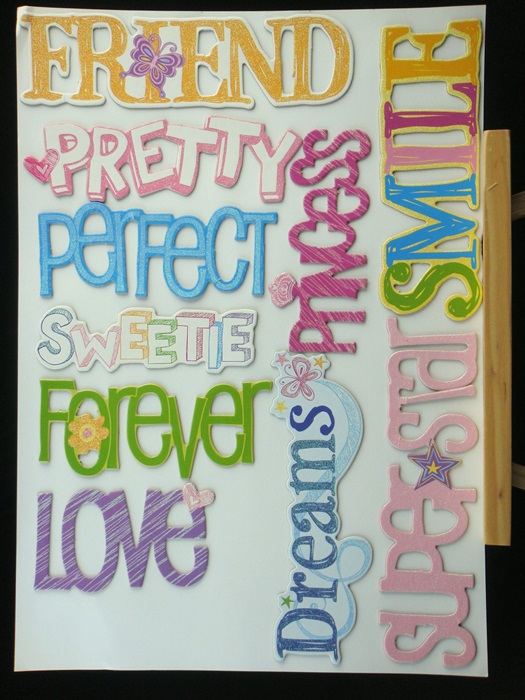 FRIEND
PRETTY
Perfect
SWEETIE
Forever
LOVe
PRINCESS
Dreams
SMILE
super star